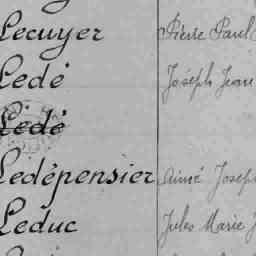 Lecuyer Pierre Paul
Ledé Joseph Jean
Ledé
Ledépensier Aimé Joseph
Leduc Jules Marie J